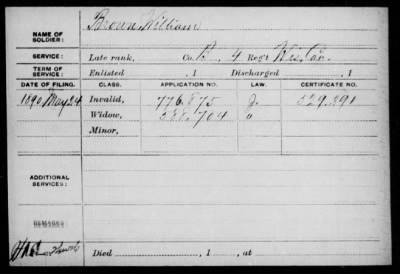 Brown, William
NAME OF SOLDIER:
SERVICE: Late rank, Co. B, 4 Reg't Wis. Cav.
TERM OF SERVICE: Enlisted , 1 Discharged , 1
DATE OF FILING. CLASS. APPLICATION NO. LAW. CERTIFICATE NO.
1890 May 24 Invalid, 776.875 J. 529.391
Widow, 588.704 "
Minor,
ADDITIONAL SERVICES:
REMARKS:
Died , 1 , at